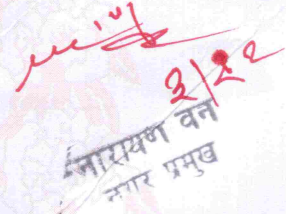 ३/२२
नारायण वन
नगर प्रमुख